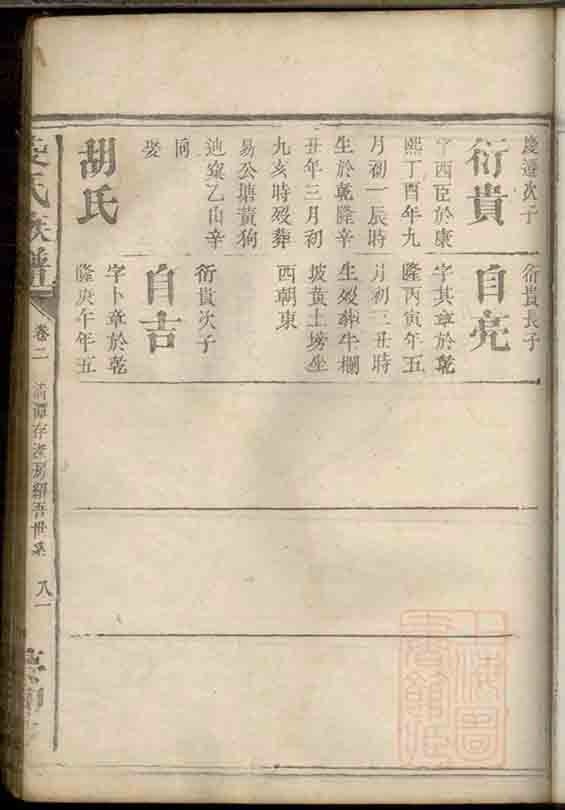 慶遷次子
衍貴
字酉臣於康
熙丁酉年九
月初一辰時
生於乾隆辛
丑年三月初
九亥時歿葬
易公塘黃狗
迆窠乙山辛
向
娶
胡氏
衍貴長子
自亮
字其章於乾
隆丙寅年五
月初三丑時
生歿葬牛欄
坡黃土塝坐
西朝東
衍貴次子
自吉
字卜章於乾
隆庚午年五
氏族譜
卷二
存
房紹吾世系
八一
上海圖書館藏